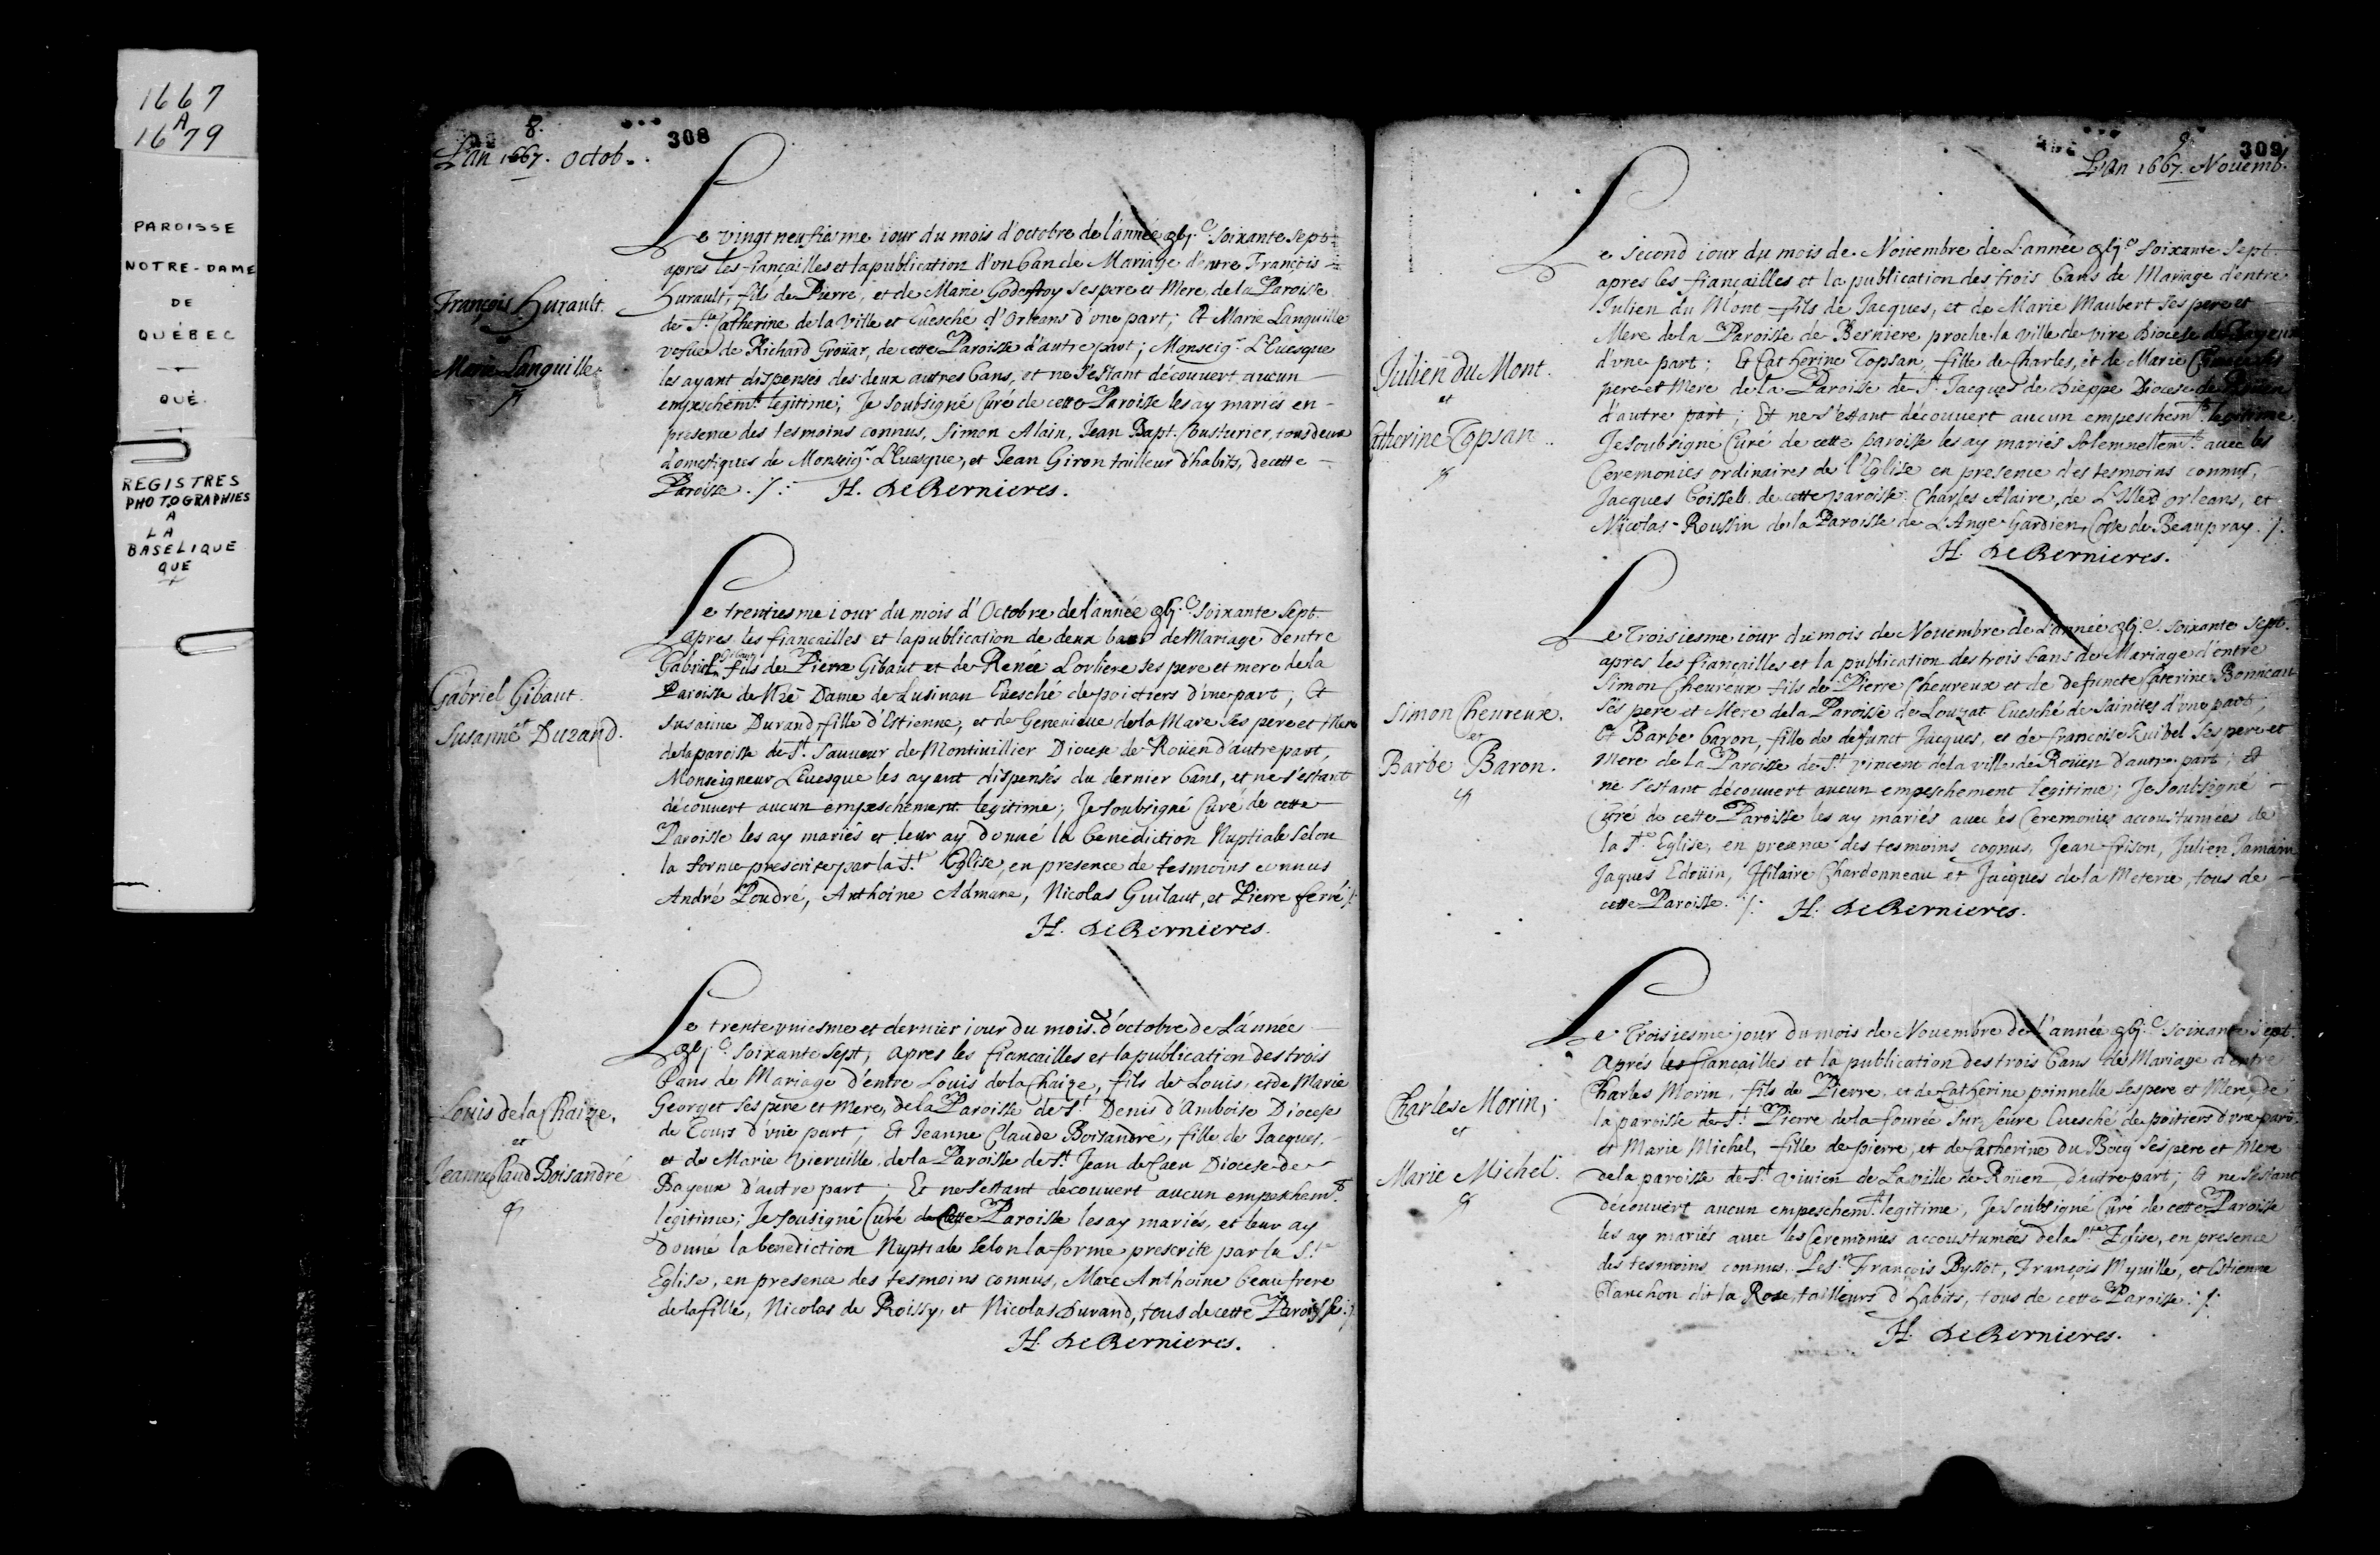 1667
A
1679
PAROISSE
NOTRE-DAME
DE
QUÉBEC
QUÉ.
REGISTRES
PHOTOGRAPHIES
A
LA
BASELIQUE
QUE
8.
308
L'an 1667. octob.
François Hurault.
et
Marie Languille
Le vingt neufiesme iour du mois d'octobre de l'année gbj.c soixante sept
apres les fiançailles et la publication d'vn ban de Mariage d'entre François
Hurault, fils de Pierre, et de Marie Godefroy ses pere et Mere, de la Paroisse
de Ste Catherine de la Ville et Euesché d'Orleans d'vne part; Et Marie Languille
vefue de Richard Groüar, de cette Paroisse d'autre part; Monseigr. L'Euesque
les ayant dispensés des deux autres bans, et ne s'estant découvert aucun
empeschemt. legitime; Je soubsigné Curé de cette Paroisse les ay mariés en
presence des tesmoins connus, Simon Alain, Jean Bapt. Cousturier, tous deux
domestiques de Monseigr. L'Euesque, et Jean Giron tailleur d'habits, de cette
Paroisse ./: H. de Bernieres.
Gabriel Gibaut.
et
Susanne Durand.
Le trentiesme iour du mois d'Octobre de l'année gbj.c soixante sept
apres les fiançailles et la publication de deux bans de Mariage dentre
Gabriel Gibaut fils de Pierre Gibaut et de Renée Lorliere ses pere et mere de la
Paroisse de Nre Dame de Lusinan Euesché de poictiers d'vne part; Et
Susanne Durand fille d'Estienne, et de Geneuieue de la Mare ses pere et Mere
de la paroisse de St. Sauueur de Montiuillier Diocese de Roüen d'autre part,
Monseigneur L'Euesque les ayant dispensés du dernier bans, et ne s'estant
découvert aucun empeschement legitime; Je soubsigné Curé de cette
Paroisse les ay mariés et leur ay donné la benediction Nuptiale selon
la forme prescrite par la Ste Eglise, en presence de tesmoins connus
André Poudré, Anthoine Admare, Nicolas Guilaut, et Pierre ferré /:
H. de Bernieres.
Louis de la Chaize,
et
Jeanne Claud Boisandré
Le trente vniesme et dernier iour du mois d'octobre de L'année
gbj.c soixante sept, apres les fiançailles et la publication des trois
bans de Mariage d'entre Louis de la Chaize, fils de Louis, et de Marie
Georget ses pere et mere, de la Paroisse de St Denis d'Amboise Diocese
de Tours d'vne part; Et Jeanne Claude Boisandré, fille de Jacques,
et de Marie Vieruille de la Paroisse de St. Jean de Caen Diocese de
Bayeux d'autre part; Et ne s'estant decouvert aucun empeschemt.
legitime; Je sousigné Curé de Cette Paroisse les ay mariés, et leur ay
donné la benediction Nuptiale selon la forme prescrite par la Ste
Eglise, en presence des tesmoins connus, Marc Anthoine beau frere
de la fille, Nicolas de Roissy, et Nicolas Durand, tous de cette Paroisse ./:
H. de Bernieres.
9.
309
L'an 1667. Nouemb.
Julien du Mont.
et
Catherine Topsan.
Le second iour du mois de Nouembre de L'année gbj.c soixante sept
apres les fiancailles et la publication des trois bans de Mariage d'entre
Julien du Mont fils de Jacques, et de Marie Maubert ses pere et
Mere de la Paroisse de Berniere proche la ville de vire Diocese de Bayeux
d'vne part; Et Catherine Topsan, fille de Charles, et de Marie
pere et Mere de la Paroisse de St. Jacques de Dieppe Diocese de Roüen
d'autre part; Et ne s'estant découvert aucun empeschemt. legitime
Je soubsigné Curé de cette paroisse les ay mariés solemnellemt. auec les
Ceremonies ordinaires de l'Eglise en presence des tesmoins connus,
Jacques boissell de cette paroisse. Charles Alaire, de L'Isle d'orleans, et
Nicolas Roussin de la Paroisse de L'Ange Gardien, Coste de Beaupray ./.
H. de Bernieres.
Simon Cheureux.
et
Barbe Baron.
Le Troisiesme iour du mois de Nouembre de L'année gbj.c soixante sept.
apres les fiançailles et la publication des trois bans de Mariage d'entre
Simon Cheureux fils de Pierre Cheureux et de defuncte Caterine Bonneau
ses pere et Mere de la Paroisse de Louzat Euesché de Sainctes d'vne part;
Et Barbe baron, fille de defunct Jacques, et de francoise Ruibel ses pere et
Mere de la Paroisse de St. vincent de la ville de Roüen d'autre part; Et
ne s'estant découvert aucun empeschement legitime; Je soubsigné
Curé de cette Paroisse les ay mariés auec les Ceremonies accoustumées de
la Ste Eglise, en presence des tesmoins cognus, Jean frison, Julien Jamain
Jaques Edoüin, Hilaire Chardonneau et Jacques de la Meterie, tous de
cette Paroisse. /: H. de Bernieres.
Charles Morin,
et
Marie Michel.
Le Troisiesme jour du mois de Nouembre de l'année gbj.c soixante sept.
Aprés les fiancailles et la publication des trois bans de Mariage d'entre
Charles Morin, fils de Pierre, et de Catherine poinnelle ses pere et Mere, de
la paroisse de St. Pierre de la fourée sur seure Euesché de poitiers d'vne part.
et Marie Michel, fille de pierre, et de Catherine du Bocq ses pere et Mere
de la paroisse de St. vivien de La ville de Roüen, d'autre part; Et ne s'estant
découvert aucun empeschemt. legitime, Je soubsigné Curé de cette Paroisse
les ay mariés auec les Ceremonies accoustumées de la Ste Eglise, en presence
des tesmoins connus. Les Srs François Byssot, François Myville, et Estienne
Blanchon dit la Rose, tailleurs d'habits, tous de cette Paroisse ./:
H. de Bernieres.